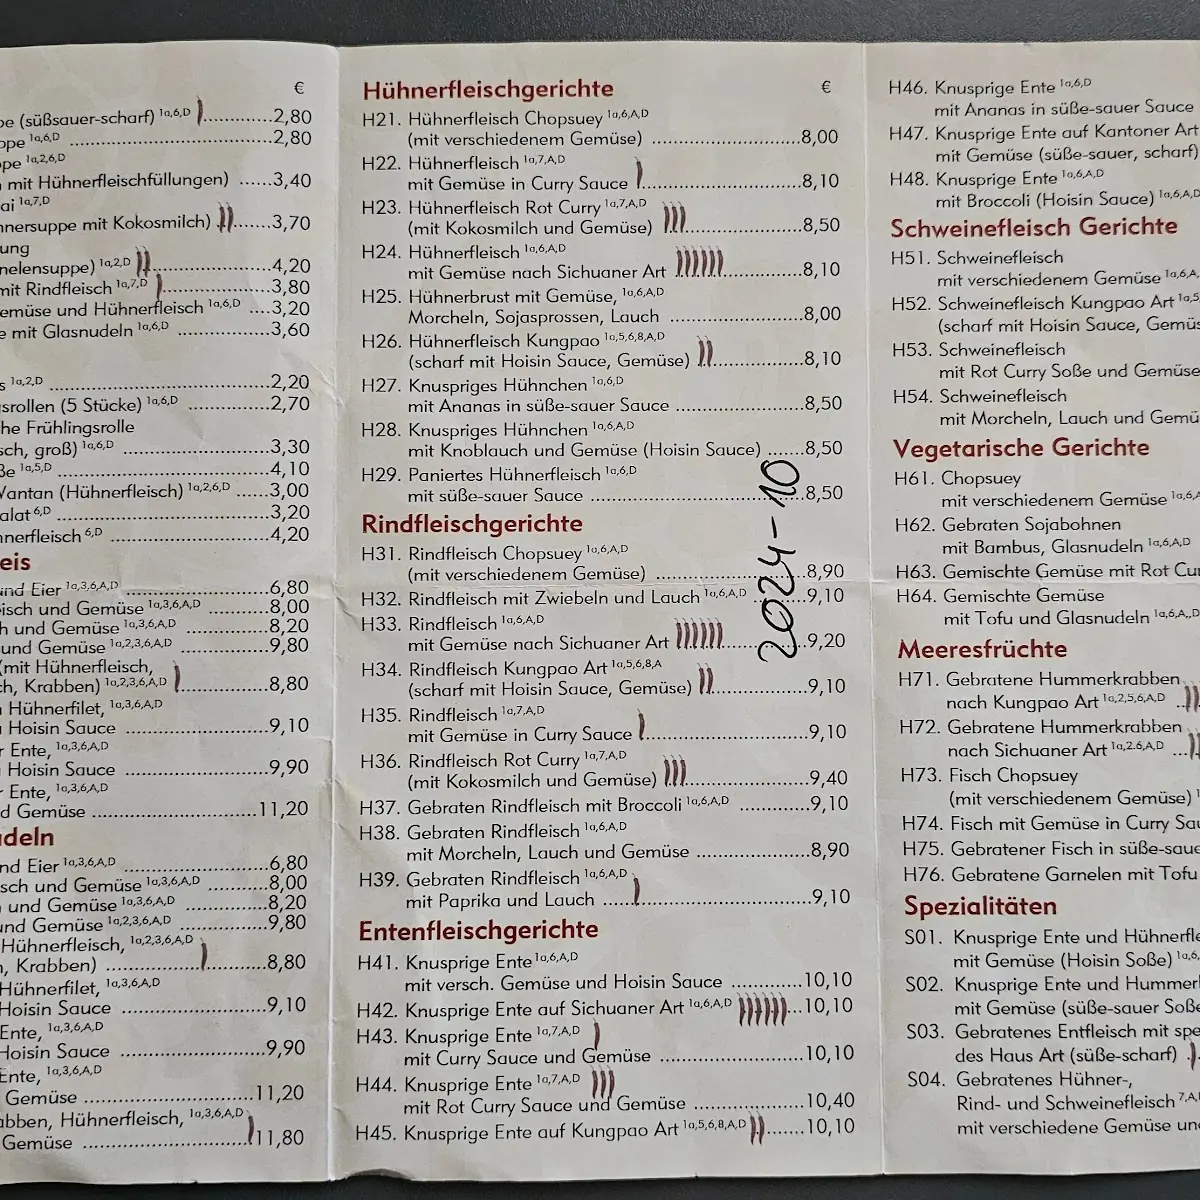 €
(süßsauer-scharf) 1a,6,D ............2,80
1a,6,D ........................2,80
1a,2,6,D
mit Hühnerfleischfüllungen) ......3,40
1a,7,D
mit Kokosmilch) .......3,70
1a,2,D ....................4,20
mit Rindfleisch 1a,7,D ................3,80
und Hühnerfleisch 1a,6,D ....3,20
mit Glasnudeln 1a,6,D ................3,60
1a,2,D ............................2,20
(5 Stücke) 1a,6,D .............2,70
Frühlingsrolle
groß) 1a,6,D ......................3,30
1a,5,D ................................4,10
(Hühnerfleisch) 1a,2,6,D ......3,00
6,D ................................3,20
6,D .........................4,20
und Eier 1a,3,6,A,D ......................6,80
und Gemüse 1a,3,6,A,D ............8,00
und Gemüse 1a,3,6,A,D ............8,20
und Gemüse 1a,2,3,6,A,D ............9,80
(mit Hühnerfleisch,
Krabben) 1a,2,3,6,A,D ................8,80
Hühnerfilet, 1a,3,6,A,D
Hoisin Sauce ......................9,10
Ente, 1a,3,6,A,D
Hoisin Sauce ......................9,90
Ente, 1a,3,6,A,D
Gemüse ............................11,20
und Eier 1a,3,6,A,D ......................6,80
und Gemüse 1a,3,6,A,D ............8,00
und Gemüse 1a,3,6,A,D ............8,20
und Gemüse 1a,2,3,6,A,D ............9,80
Hühnerfleisch, 1a,2,3,6,A,D
Krabben) ............................8,80
Hühnerfilet, 1a,3,6,A,D
Hoisin Sauce ......................9,10
Ente, 1a,3,6,A,D
Hoisin Sauce ......................9,90
Ente, 1a,3,6,A,D
Gemüse ............................11,20
Hühnerfleisch, 1a,3,6,A,D
Gemüse ............................11,80
Hühnerfleischgerichte €
H21. Hühnerfleisch Chopsuey 1a,6,A,D
(mit verschiedenem Gemüse) ..........................8,00
H22. Hühnerfleisch 1a,7,A,D
mit Gemüse in Curry Sauce ...........................8,10
H23. Hühnerfleisch Rot Curry 1a,7,A,D
(mit Kokosmilch und Gemüse) .....................8,50
H24. Hühnerfleisch 1a,6,A,D
mit Gemüse nach Sichuaner Art ..............8,10
H25. Hühnerbrust mit Gemüse, 1a,6,A,D
Morcheln, Sojasprossen, Lauch .......................8,00
H26. Hühnerfleisch Kungpao 1a,5,6,8,A,D
(scharf mit Hoisin Sauce, Gemüse) ................8,10
H27. Knuspriges Hühnchen 1a,6,D
mit Ananas in süße-sauer Sauce ......................8,50
H28. Knuspriges Hühnchen 1a,6,A,D
mit Knoblauch und Gemüse (Hoisin Sauce) .......8,50
H29. Paniertes Hühnerfleisch 1a,6,D
mit süße-sauer Sauce ....................................8,50
2024-10
Rindfleischgerichte
H31. Rindfleisch Chopsuey 1a,6,A,D
(mit verschiedenem Gemüse) ..........................8,90
H32. Rindfleisch mit Zwiebeln und Lauch 1a,6,A,D ............9,10
H33. Rindfleisch 1a,6,A,D
mit Gemüse nach Sichuaner Art ..............9,20
H34. Rindfleisch Kungpao Art 1a,5,6,8,A
(scharf mit Hoisin Sauce, Gemüse) ................9,10
H35. Rindfleisch 1a,7,A,D
mit Gemüse in Curry Sauce ...........................9,10
H36. Rindfleisch Rot Curry 1a,7,A,D
(mit Kokosmilch und Gemüse) .....................9,40
H37. Gebraten Rindfleisch mit Broccoli 1a,6,A,D ............9,10
H38. Gebraten Rindfleisch 1a,6,A,D
mit Morcheln, Lauch und Gemüse ...................8,90
H39. Gebraten Rindfleisch 1a,6,A,D
mit Paprika und Lauch ...............................9,10
Entenfleischgerichte
H41. Knusprige Ente 1a,6,A,D
mit versch. Gemüse und Hoisin Sauce .............10,10
H42. Knusprige Ente auf Sichuaner Art 1a,6,A,D ...10,10
H43. Knusprige Ente 1a,7,A,D
mit Curry Sauce und Gemüse .........................10,10
H44. Knusprige Ente 1a,7,A,D
mit Rot Curry Sauce und Gemüse ...................10,40
H45. Knusprige Ente auf Kungpao Art 1a,5,6,8,A,D .......10,10
H46. Knusprige Ente 1a,6,D
mit Ananas in süße-sauer Sauce
H47. Knusprige Ente auf Kantoner Art
mit Gemüse (süße-sauer, scharf)
H48. Knusprige Ente 1a,6,A,D
mit Broccoli (Hoisin Sauce) 1a,6,A,D
Schweinefleisch Gerichte
H51. Schweinefleisch
mit verschiedenem Gemüse 1a,6,A,
H52. Schweinefleisch Kungpao Art 1a,5
(scharf mit Hoisin Sauce,
H53. Schweinefleisch
mit Rot Curry Soße und Gemüse
H54. Schweinefleisch
mit Morcheln, Lauch und
Vegetarische Gerichte
H61. Chopsuey
mit verschiedenem Gemüse 1a,6,A
H62. Gebraten Sojabohnen
mit Bambus, Glasnudeln 1a,6,A,D
H63. Gemischte Gemüse mit Rot
H64. Gemischte Gemüse
mit Tofu und Glasnudeln 1a,6,A,,D
Meeresfrüchte
H71. Gebratene Hummerkrabben
nach Kungpao Art 1a,2,5,6,A,D ..
H72. Gebratene Hummerkrabben
nach Sichuaner Art 1a,2.6,A,D ...
H73. Fisch Chopsuey
(mit verschiedenem Gemüse)
H74. Fisch mit Gemüse in Curry
H75. Gebratener Fisch in
H76. Gebratene Garnelen mit Tofu
Spezialitäten
S01. Knusprige Ente und
mit Gemüse (Hoisin Soße) 1a,6,
S02. Knusprige Ente und
mit Gemüse (süße-sauer
S03. Gebratenes Entfleisch mit
des Haus Art (süße-scharf)
S04. Gebratenes Hühner-,
Rind- und Schweinefleisch 7,A,
mit verschiedene Gemüse